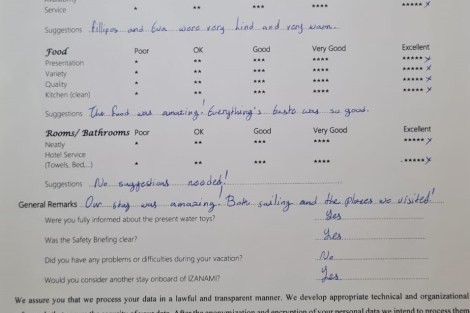 Service * ** *** **** ***** x
Suggestions fillipos and Eva were very kind and very warm.
Food Poor OK Good Very Good Excellent
Presentation * ** *** **** ***** x
Variety * ** *** **** ***** x
Quality * ** *** **** ***** x
Kitchen (clean) * ** *** **** ***** x
Suggestions The food was amazing! Everything's taste was so good.
Rooms/ Bathrooms Poor OK Good Very Good Excellent
Neatly * ** *** **** ***** x
Hotel Service
(Towels, Bed,..) * ** *** **** ***** x
Suggestions No suggestions needed!
General Remarks Our stay was amazing! Both sailing and the places we visited!
Were you fully informed about the present water toys? Yes
Was the Safety Briefing clear? Yes
Did you have any problems or difficulties during your vacation? No
Would you consider another stay onboard of IZANAMI? Yes
We assure you that we process your data in a lawful and transparent manner. We develop appropriate technical and organizational